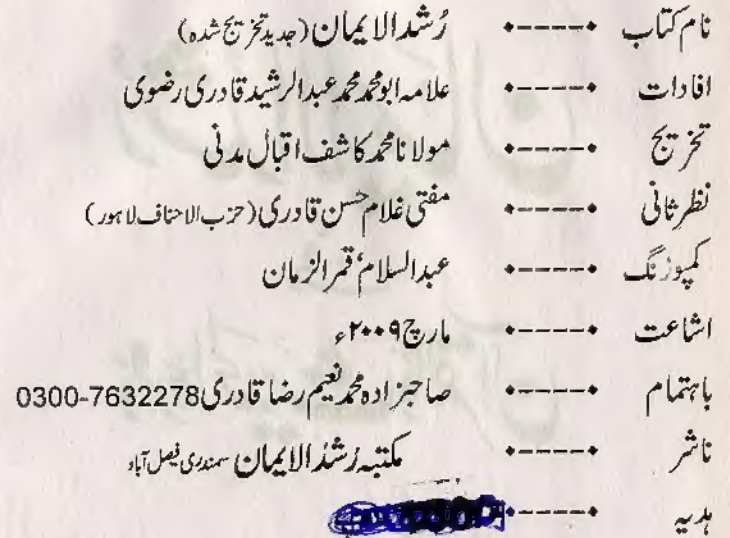 نام کتاب •-----• رُشد الایمان (جدید تخریج شدہ)
افادات •-----• علامہ ابو محمد محمد عبدالرشید قادری رضوی
تخریج •-----• مولانا محمد کاشف اقبال مدنی
نظر ثانی •-----• مفتی غلام حسن قادری (حزب الاحناف لاہور)
کمپوزنگ •-----• عبدالسلام، قمر الزمان
اشاعت •-----• مارچ ۲۰۰۹ء
باہتمام •-----• صاحبزادہ محمد نعیم رضا قادری 0300-7632278
ناشر •-----• مکتبہ رُشدُ الایمان سمندری فیصل آباد
ہدیہ •-----•